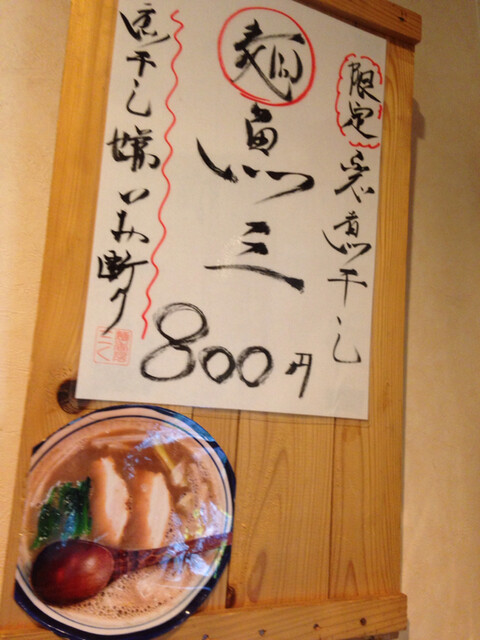 限定 裏煮干し
麺 魚三
800円
煮干し嫌いお断り